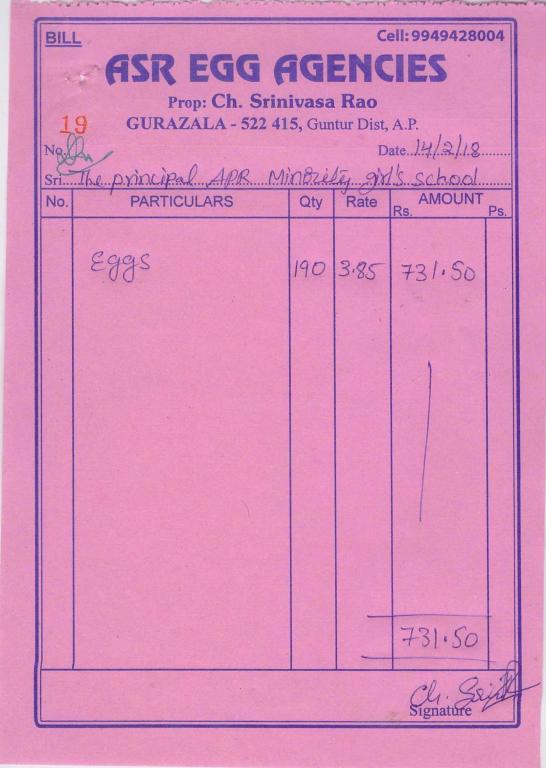 BILL
Cell: 9949428004
ASR EGG AGENCIES
Prop: Ch. Srinivasa Rao
GURAZALA - 522 415, Guntur Dist, A.P.
19
No.
Date 14/2/18
Sri The principal APR Minority girl's school
No. PARTICULARS Qty Rate AMOUNT
Rs. Ps.
Eggs 190 3.85 731.50
731.50
Signature